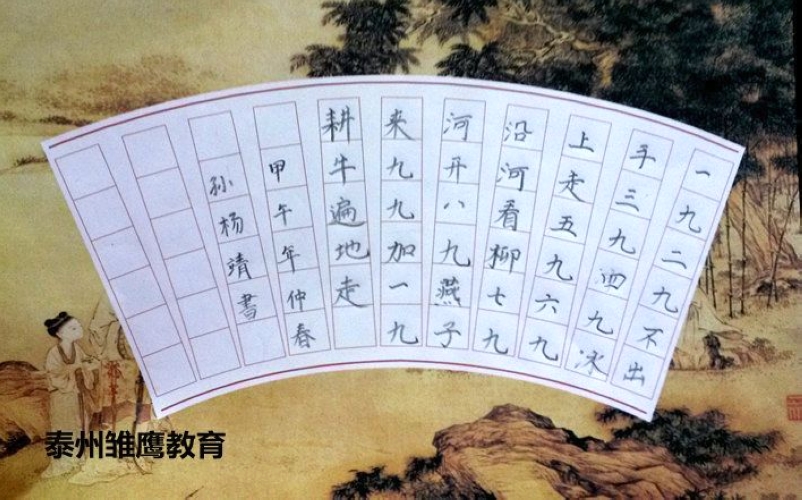 一九二九不出
手三九四九冰
上走五九六九
沿河看柳七九
河开八九燕子
来九九加一九
耕牛遍地走
甲午年仲春
孙杨靖書
泰州雏鹰教育